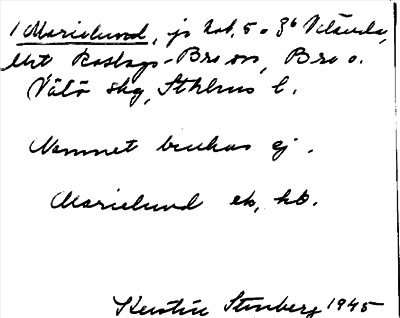 / Marielund, jo hok. 5 o 3⁶ Vitävla,
utt Roslags-Bro sn, Bro o.
Vätö skg, Sthlms l.
Namnet brukas ej.
Marielund ek, hb.
Kerstin Stenberg 1945